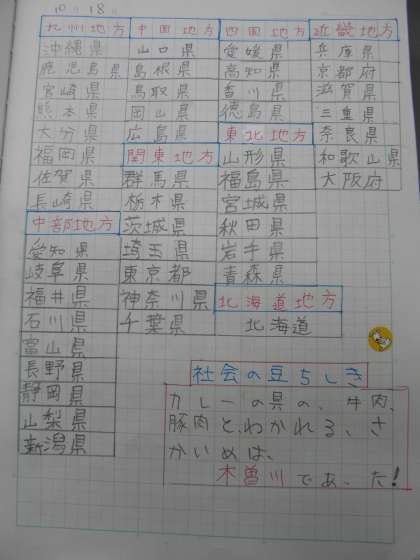 10 18
九州地方
沖縄県
鹿児島県
宮崎県
熊本県
大分県
福岡県
佐賀県
長崎県
中部地方
愛知県
岐阜県
福井県
石川県
富山県
長野県
静岡県
山梨県
新潟県
中国地方
山口県
島根県
鳥取県
岡山県
広島県
関東地方
群馬県
栃木県
茨城県
埼玉県
東京都
神奈川県
千葉県
四国地方
愛媛県
高知県
香川県
徳島県
東北地方
山形県
福島県
宮城県
秋田県
岩手県
青森県
北海道地方
北海道
近畿地方
兵庫県
京都府
滋賀県
三重県
奈良県
和歌山県
大阪府
社会の豆ちしき
カレーの具の、牛肉、
豚肉と、わかれる、さ
かいめは、
木曽川であった!